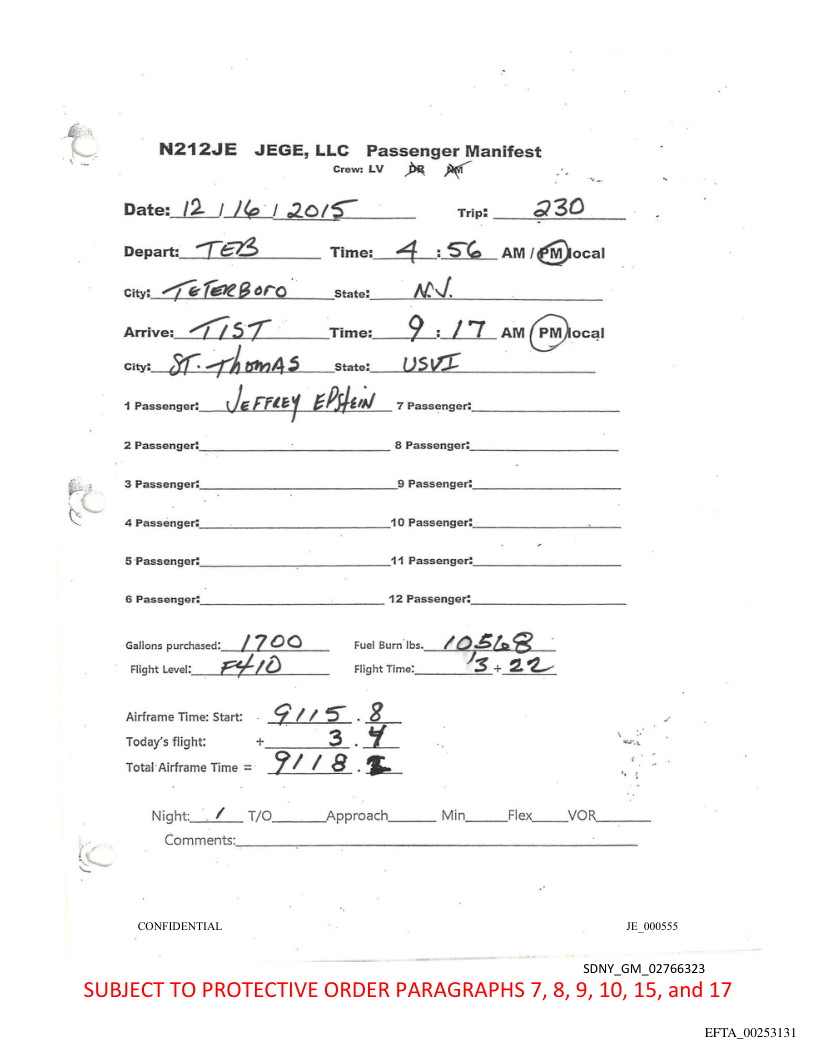 N212JE JEGE, LLC Passenger Manifest
Crew: LV DR AM
Date: 12 / 16 / 2015 Trip: 230
Depart: TEB Time: 4 : 56 AM / PM local
City: TETERBORO State: N.J.
Arrive: TIST Time: 9 : 17 AM PM local
City: ST. ThomAS State: USVI
1 Passenger: JEFFREY EPStEiN 7 Passenger:
2 Passenger: 8 Passenger:
3 Passenger: 9 Passenger:
4 Passenger: 10 Passenger:
5 Passenger: 11 Passenger:
6 Passenger: 12 Passenger:
Gallons purchased: 1700 Fuel Burn lbs. 10568
Flight Level: F410 Flight Time: 3 + 22
Airframe Time: Start: 9115 . 8
Today's flight: + 3 . 4
Total Airframe Time = 9118 .
Night: / T/O Approach Min Flex VOR
Comments:
CONFIDENTIAL JE_000555
SDNY_GM_02766323
SUBJECT TO PROTECTIVE ORDER PARAGRAPHS 7, 8, 9, 10, 15, and 17
EFTA_00253131